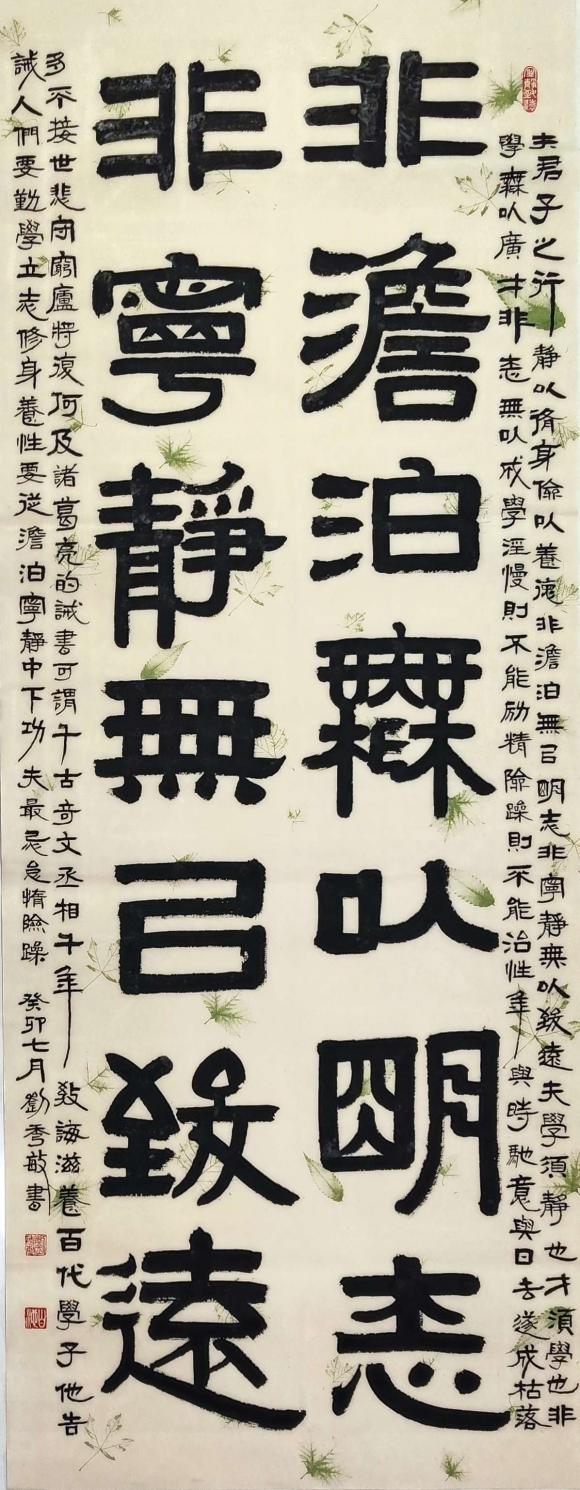 夫君子之行靜以脩身儉以養德非澹泊無㠯明志非寧靜無以致遠夫學須靜也才須學也非
學無以廣才非志無以成學淫慢則不能励精險躁則不能治性年與時馳意與日去遂成枯落
非澹泊無以明志
非寧靜無㠯致遠
多不接世悲守窮廬將復何及諸葛亮的誡書可謂千古奇文丞相千年教誨滋養百代學子他告
誡人們要勤學立志修身養性要從澹泊寧靜中下功夫最忌怠惰險躁 癸卯七月劉秀敏書